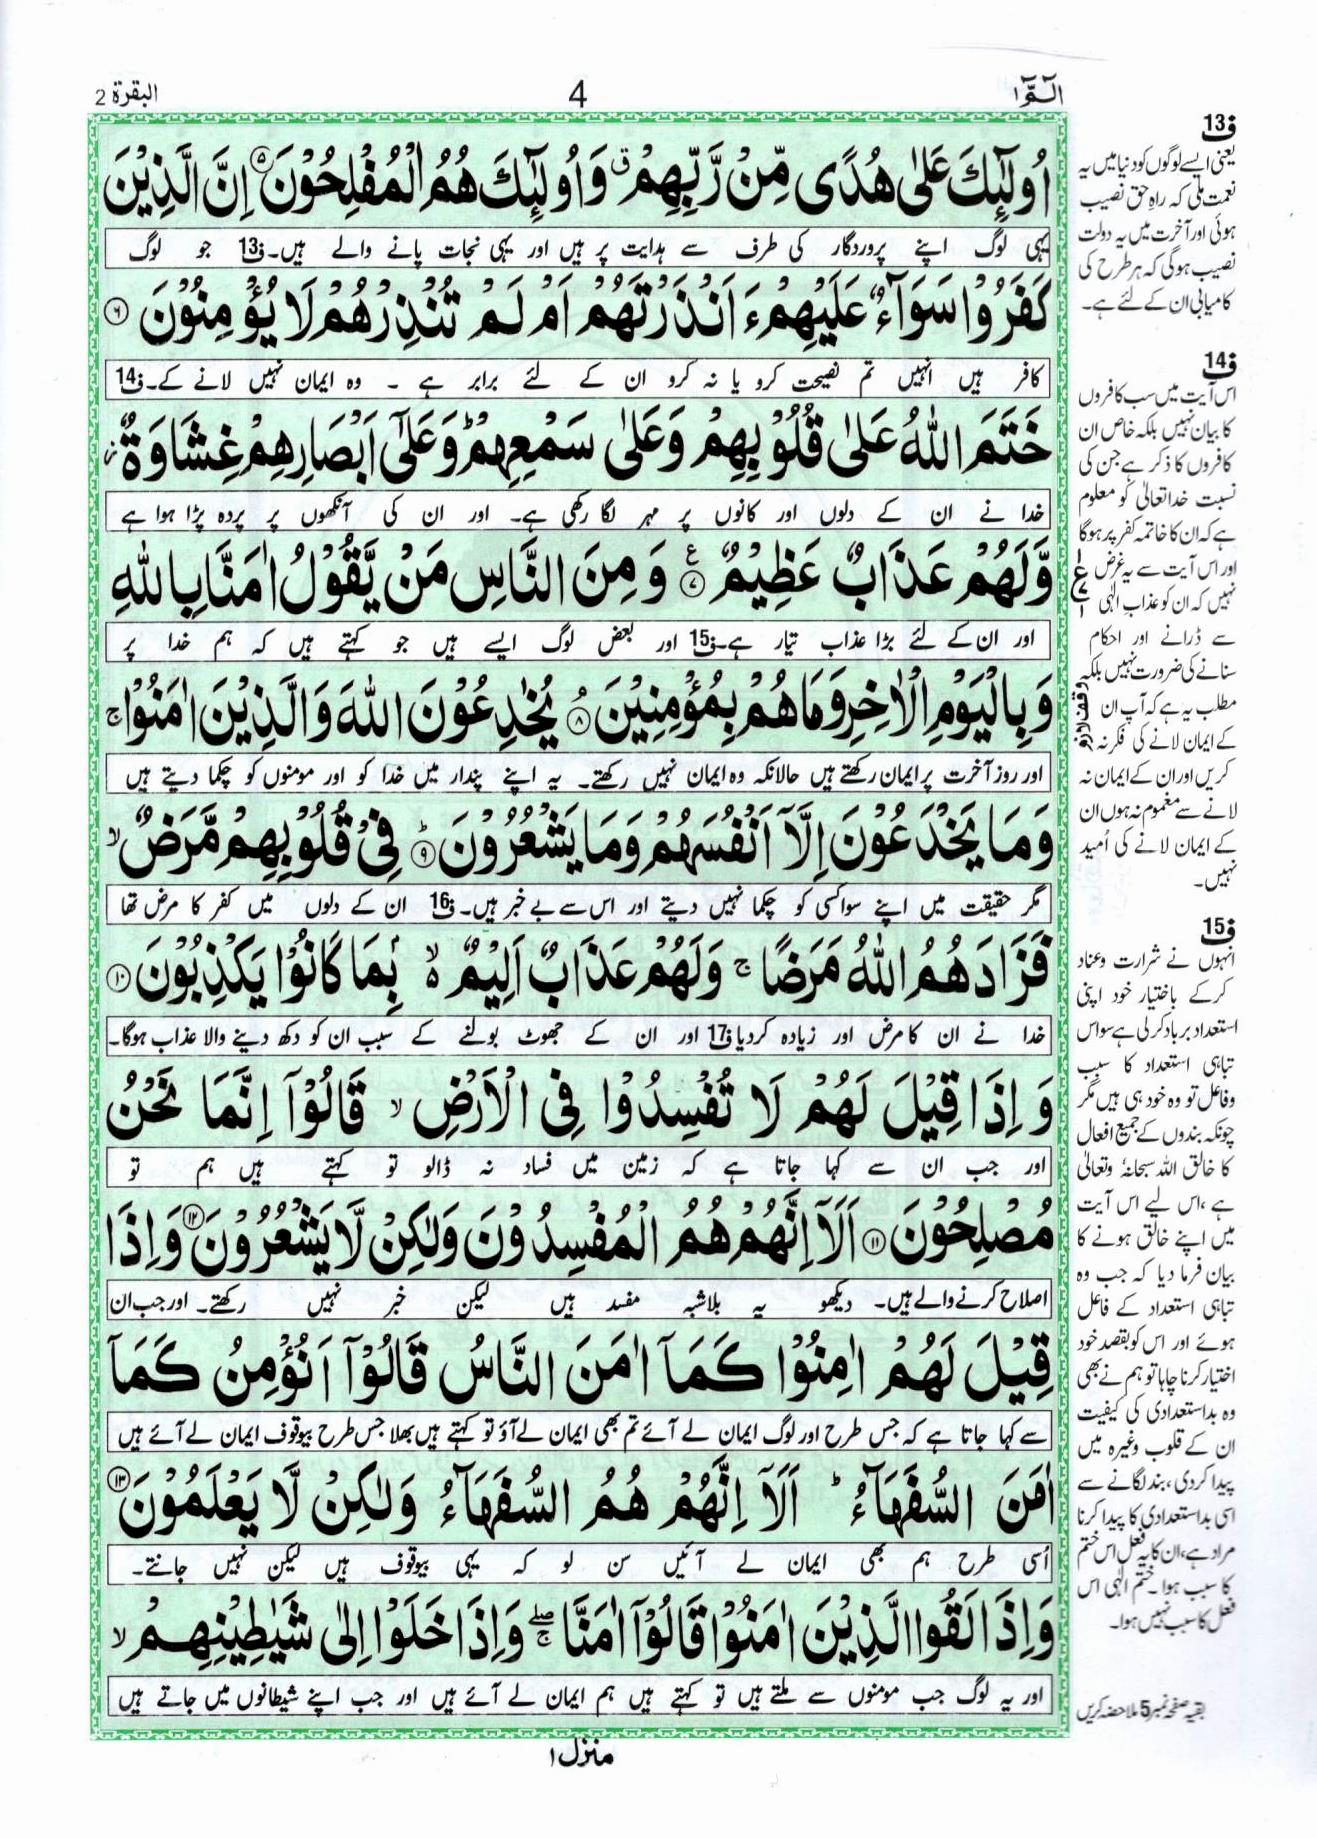 الٓمّٓ ۱
4
البقرة 2
اُولٰٓئِكَ عَلٰى هُدًى مِّنْ رَّبِّهِمْ ۗ وَاُولٰٓئِكَ هُمُ الْمُفْلِحُوْنَ ۵ اِنَّ الَّذِيْنَ
یہی لوگ اپنے پروردگار کی طرف سے ہدایت پر ہیں اور یہی نجات پانے والے ہیں۔ف13 جو لوگ
كَفَرُوْا سَوَآءٌ عَلَيْهِمْ ءَاَنْذَرْتَهُمْ اَمْ لَمْ تُنْذِرْهُمْ لَا يُؤْمِنُوْنَ ۶
کافر ہیں انہیں تم نصیحت کرو یا نہ کرو ان کے لئے برابر ہے ۔ وہ ایمان نہیں لانے کے۔ف14
خَتَمَ اللّٰهُ عَلٰى قُلُوْبِهِمْ وَعَلٰى سَمْعِهِمْ ؕ وَعَلٰٓى اَبْصَارِهِمْ غِشَاوَةٌ ز
خدا نے ان کے دلوں اور کانوں پر مہر لگا رکھی ہے۔ اور ان کی آنکھوں پر پردہ پڑا ہوا ہے
وَّلَهُمْ عَذَابٌ عَظِيْمٌ ۷ ع وَمِنَ النَّاسِ مَنْ يَّقُوْلُ اٰمَنَّا بِاللّٰهِ
اور ان کے لئے بڑا عذاب تیار ہے۔ف15 اور بعض لوگ ایسے ہیں جو کہتے ہیں کہ ہم خدا پر
وَبِالْيَوْمِ الْاٰخِرِ وَمَا هُمْ بِمُؤْمِنِيْنَ ۘ ۸ يُخٰدِعُوْنَ اللّٰهَ وَالَّذِيْنَ اٰمَنُوْا ۚ
اور روز آخرت پر ایمان رکھتے ہیں حالانکہ وہ ایمان نہیں رکھتے۔ یہ اپنے پندار میں خدا کو اور مومنوں کو چکما دیتے ہیں
وَمَا يَخْدَعُوْنَ اِلَّآ اَنْفُسَهُمْ وَمَا يَشْعُرُوْنَ ؕ ۹ فِيْ قُلُوْبِهِمْ مَّرَضٌ ۙ
مگر حقیقت میں اپنے سوا کسی کو چکما نہیں دیتے اور اس سے بے خبر ہیں۔ف16 ان کے دلوں میں کفر کا مرض تھا
فَزَادَهُمُ اللّٰهُ مَرَضًا ۚ وَلَهُمْ عَذَابٌ اَلِيْمٌ ۙ بِمَا كَانُوْا يَكْذِبُوْنَ ۱۰
خدا نے ان کا مرض اور زیادہ کردیا ف17 اور ان کے جھوٹ بولنے کے سبب ان کو دکھ دینے والا عذاب ہوگا۔
وَاِذَا قِيْلَ لَهُمْ لَا تُفْسِدُوْا فِى الْاَرْضِ ۙ قَالُوْٓا اِنَّمَا نَحْنُ
اور جب ان سے کہا جاتا ہے کہ زمین میں فساد نہ ڈالو تو کہتے ہیں ہم تو
مُصْلِحُوْنَ ۱۱ اَلَآ اِنَّهُمْ هُمُ الْمُفْسِدُوْنَ وَلٰكِنْ لَّا يَشْعُرُوْنَ ۱۲ وَاِذَا
اصلاح کرنے والے ہیں۔ دیکھو یہ بلاشبہ مفسد ہیں لیکن خبر نہیں رکھتے۔ اور جب ان
قِيْلَ لَهُمْ اٰمِنُوْا كَمَآ اٰمَنَ النَّاسُ قَالُوْٓا اَنُؤْمِنُ كَمَآ
سے کہا جاتا ہے کہ جس طرح اور لوگ ایمان لے آئے تم بھی ایمان لے آؤ تو کہتے ہیں بھلا جس طرح بیوقوف ایمان لے آئے ہیں
اٰمَنَ السُّفَهَآءُ ؕ اَلَآ اِنَّهُمْ هُمُ السُّفَهَآءُ وَلٰكِنْ لَّا يَعْلَمُوْنَ ۱۳
اُسی طرح ہم بھی ایمان لے آئیں سن لو کہ یہی بیوقوف ہیں لیکن نہیں جانتے۔
وَاِذَا لَقُوا الَّذِيْنَ اٰمَنُوْا قَالُوْٓا اٰمَنَّا ۖۚ وَاِذَا خَلَوْا اِلٰى شَيٰطِيْنِهِمْ ۙ
اور یہ لوگ جب مومنوں سے ملتے ہیں تو کہتے ہیں ہم ایمان لے آئے ہیں اور جب اپنے شیطانوں میں جاتے ہیں
منزل ۱
ف13
یعنی ایسے لوگوں کو دنیا میں یہ
نعمت ملی کہ راہِ حق نصیب
ہوئی اور آخرت میں یہ دولت
نصیب ہوگی کہ ہر طرح کی
کامیابی ان کے لئے ہے۔
ف14
اس آیت میں سب کافروں
کا بیان نہیں بلکہ خاص ان
کافروں کا ذکر ہے جن کی
نسبت خدا تعالیٰ کو معلوم
ہے کہ ان کا خاتمہ کفر پر ہوگا
اور اس آیت سے یہ غرض
نہیں کہ ان کو عذاب الٰہی
سے ڈرانے اور احکام
سنانے کی ضرورت نہیں بلکہ
مطلب یہ ہے کہ آپ ان
کے ایمان لانے کی فکر نہ
کریں اور ان کے ایمان نہ
لانے سے مغموم نہ ہوں ان
کے ایمان لانے کی اُمید
نہیں۔
ع ۷ ۱
وقف لازم
ف15
انہوں نے شرارت و عناد
کرکے باختیار خود اپنی
استعداد برباد کرلی ہے سو اس
تباہی استعداد کا سبب
و فاعل تو وہ خود ہی ہیں مگر
چونکہ بندوں کے جمیع افعال
کا خالق اللہ سبحانہٗ وتعالیٰ
ہے ،اس لیے اس آیت
میں اپنے خالق ہونے کا
بیان فرما دیا کہ جب وہ
تباہی استعداد کے فاعل
ہوئے اور اس کو بقصد خود
اختیار کرنا چاہا تو ہم نے بھی
وہ بد استعدادی کی کیفیت
ان کے قلوب وغیرہ میں
پیدا کردی، بند لگانے سے
اسی بد استعدادی کا پیدا کرنا
مراد ہے، ان کا یہ فعل اس ختم
کا سبب ہوا۔ ختم الٰہی اس
فعل کا سبب نہیں ہوا۔
بقیہ صفحہ نمبر 5 ملاحظہ کریں